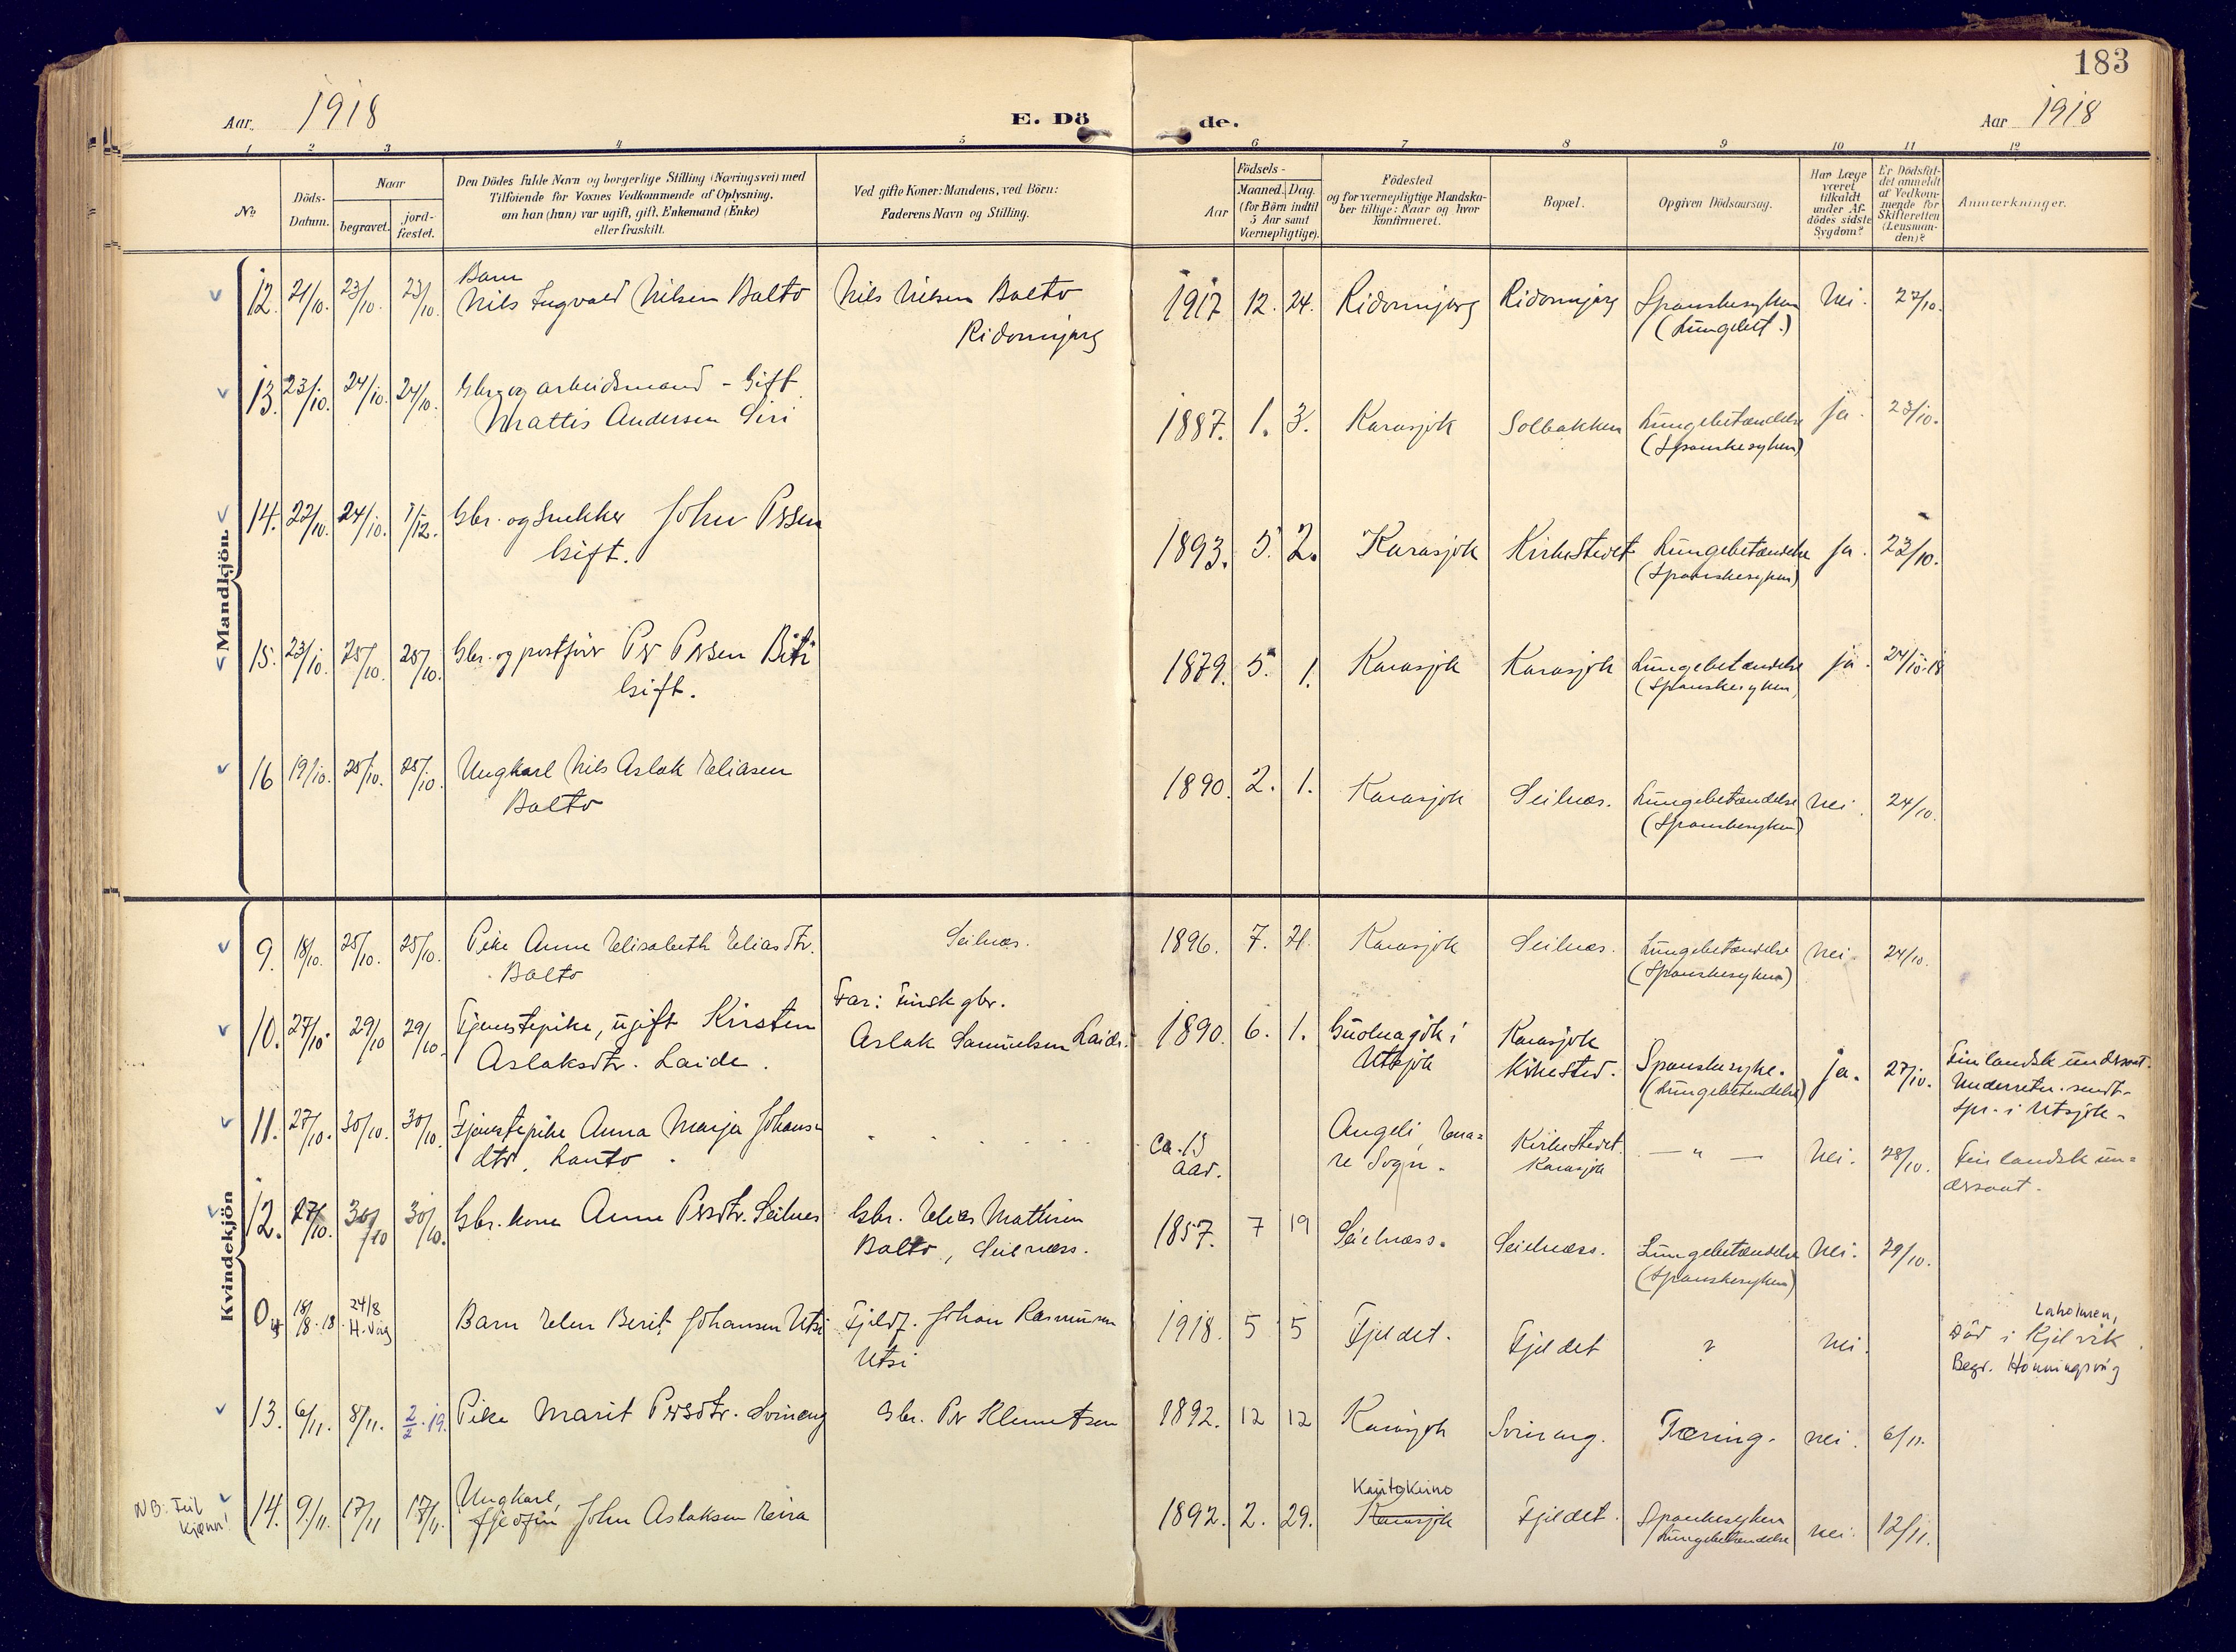 183
Aar. 1918
E. Dö de.
Aar 1918
1 2 3 4 5 6 7 8 9 10 11 12
No
Döds-
Datum.
Naar
begravet.
jord-
fæstet.
Den Dödes fulde Navn og borgerlige Stilling (Næringsvei) med
Tilföiende for Voxnes Vedkommende af Oplysning,
om han (hun) var ugift, gift, Enkemand (Enke)
eller fraskilt.
Ved gifte Koner: Mandens, ved Börn:
Faderens Navn og Stilling.
Födsels-
Aar
Maaned. Dag.
(for Börn indtil
5 Aar samt
Værnepligtige).
Födested
og for værnepligtige Mandska-
ber tillige: Naar og hvor
konfirmeret.
Bopæl.
Opgiven Dödsaarsag.
Har Læge
været
tilkaldt
under Af-
dödes sidste
Sygdom?
Er Dödsfal-
det anmeldt
af Vedkom-
mende for
Skifteretten
(Lensman-
den)?
Anmærkninger.
Mandkjön.
12. 21/10. 23/10. 23/10.
Barn
Nils Ingvald Nilsen Balto
Nils Nilsen Balto
Ridonnjarg
1917 12. 24. Ridonnjarg Ridonnjarg
Spanskesyken
(Lungebet.)
Nei. 22/10.
13. 23/10. 24/10. 24/10.
Gbr. og arbeidsmand - Gift
Mattis Andersen Siri
1887. 1. 3. Karasjok Solbakken
Lungebetændelse
(Spanskesyken)
ja. 23/10.
14. 22/10. 24/10. 1/12.
Gbr. og Snekker John Persen
Gift.
1893. 5. 2. Karasjok Kirkestedet
Lungebetændelse
(Spanskesyken)
ja. 23/10.
15. 23/10. 25/10. 25/10.
Gbr. og postförer Per Persen Biti
Gift.
1879. 5. 1. Karasjok Karasjok
Lungebetændelse
(Spanskesyken)
ja. 24/10-18
16 19/10. 25/10. 25/10.
Ungkarl Nils Aslak Eliasen
Balto
1890. 2. 1. Karasjok Seilnæs.
Lungebetændelse
(Spanskesyken)
Nei. 24/10.
Kvindekjön
9. 18/10. 25/10. 25/10.
Pike Anne Elisabeth Eliasdtr.
Balto
Seilnæs.
1896. 7. 21. Karasjok Seilnæs.
Lungebetændelse
(Spanskesyken)
Nei. 24/10.
10. 27/10. 29/10 29/10.
Tjenestepike, ugift Kirsten
Aslaksdtr. Laide.
Far: Finsk gbr.
Aslak Samuelsen Laide.
1890. 6. 1.
Guolnagok i
Utsjok
Karasjok
Kirkested.
Spanskesyke.
(Lungebetændelse)
ja. 27/10.
Finlandsk undersaat.
Underretn. sendt
Spr. i Utsjok.
11. 27/10. 30/10. 30/10.
Tjenestepike Anna Marja Johans-
dtr. Lanto.
ca. 15
aar.
Angeli, Ena=
re Sogn.
Kirkestedet
Karasjok
— " —
Nei. 28/10.
Finlandsk un=
dersaat.
12. 27/10. 30/10 30/10.
Gbr. kone Anne Persdtr. Seilnes
Gbr. Elias Mathisen
Balto, Seilnæss.
1857. 7 19 Seilnæss. Seilnæss.
Lungebetændelse
(Spanskesyken)
Nei. 29/10.
0 18/8-18 24/8
H.våg
Barn Elen Berit Johansen Utsi
Fjeldf. Johan Rasmussen
Utsi
1918. 5 5 Fjeldet. Fjeldet ? Nei.
Laholmen,
Död i Kjelvik.
Begr. Honningsvåg
13. 6/11. 8/11. 2/2.19.
Pike Marit Persdtr. Svineng
Gbr. Per Klemetsen
1892. 12 12 Karasjok Svineng. Tæring. Nei. 6/11.
NB: Feil
kjønn!
14. 9/11. 17/11 17/11.
Ungkarl,
fjeldfin John Aslaksen Eira
1892. 2. 29.
Kautokeino
Karasjok
Fjeldet.
Spanskesyken
Lungebetændelse
Nei. 12/11.